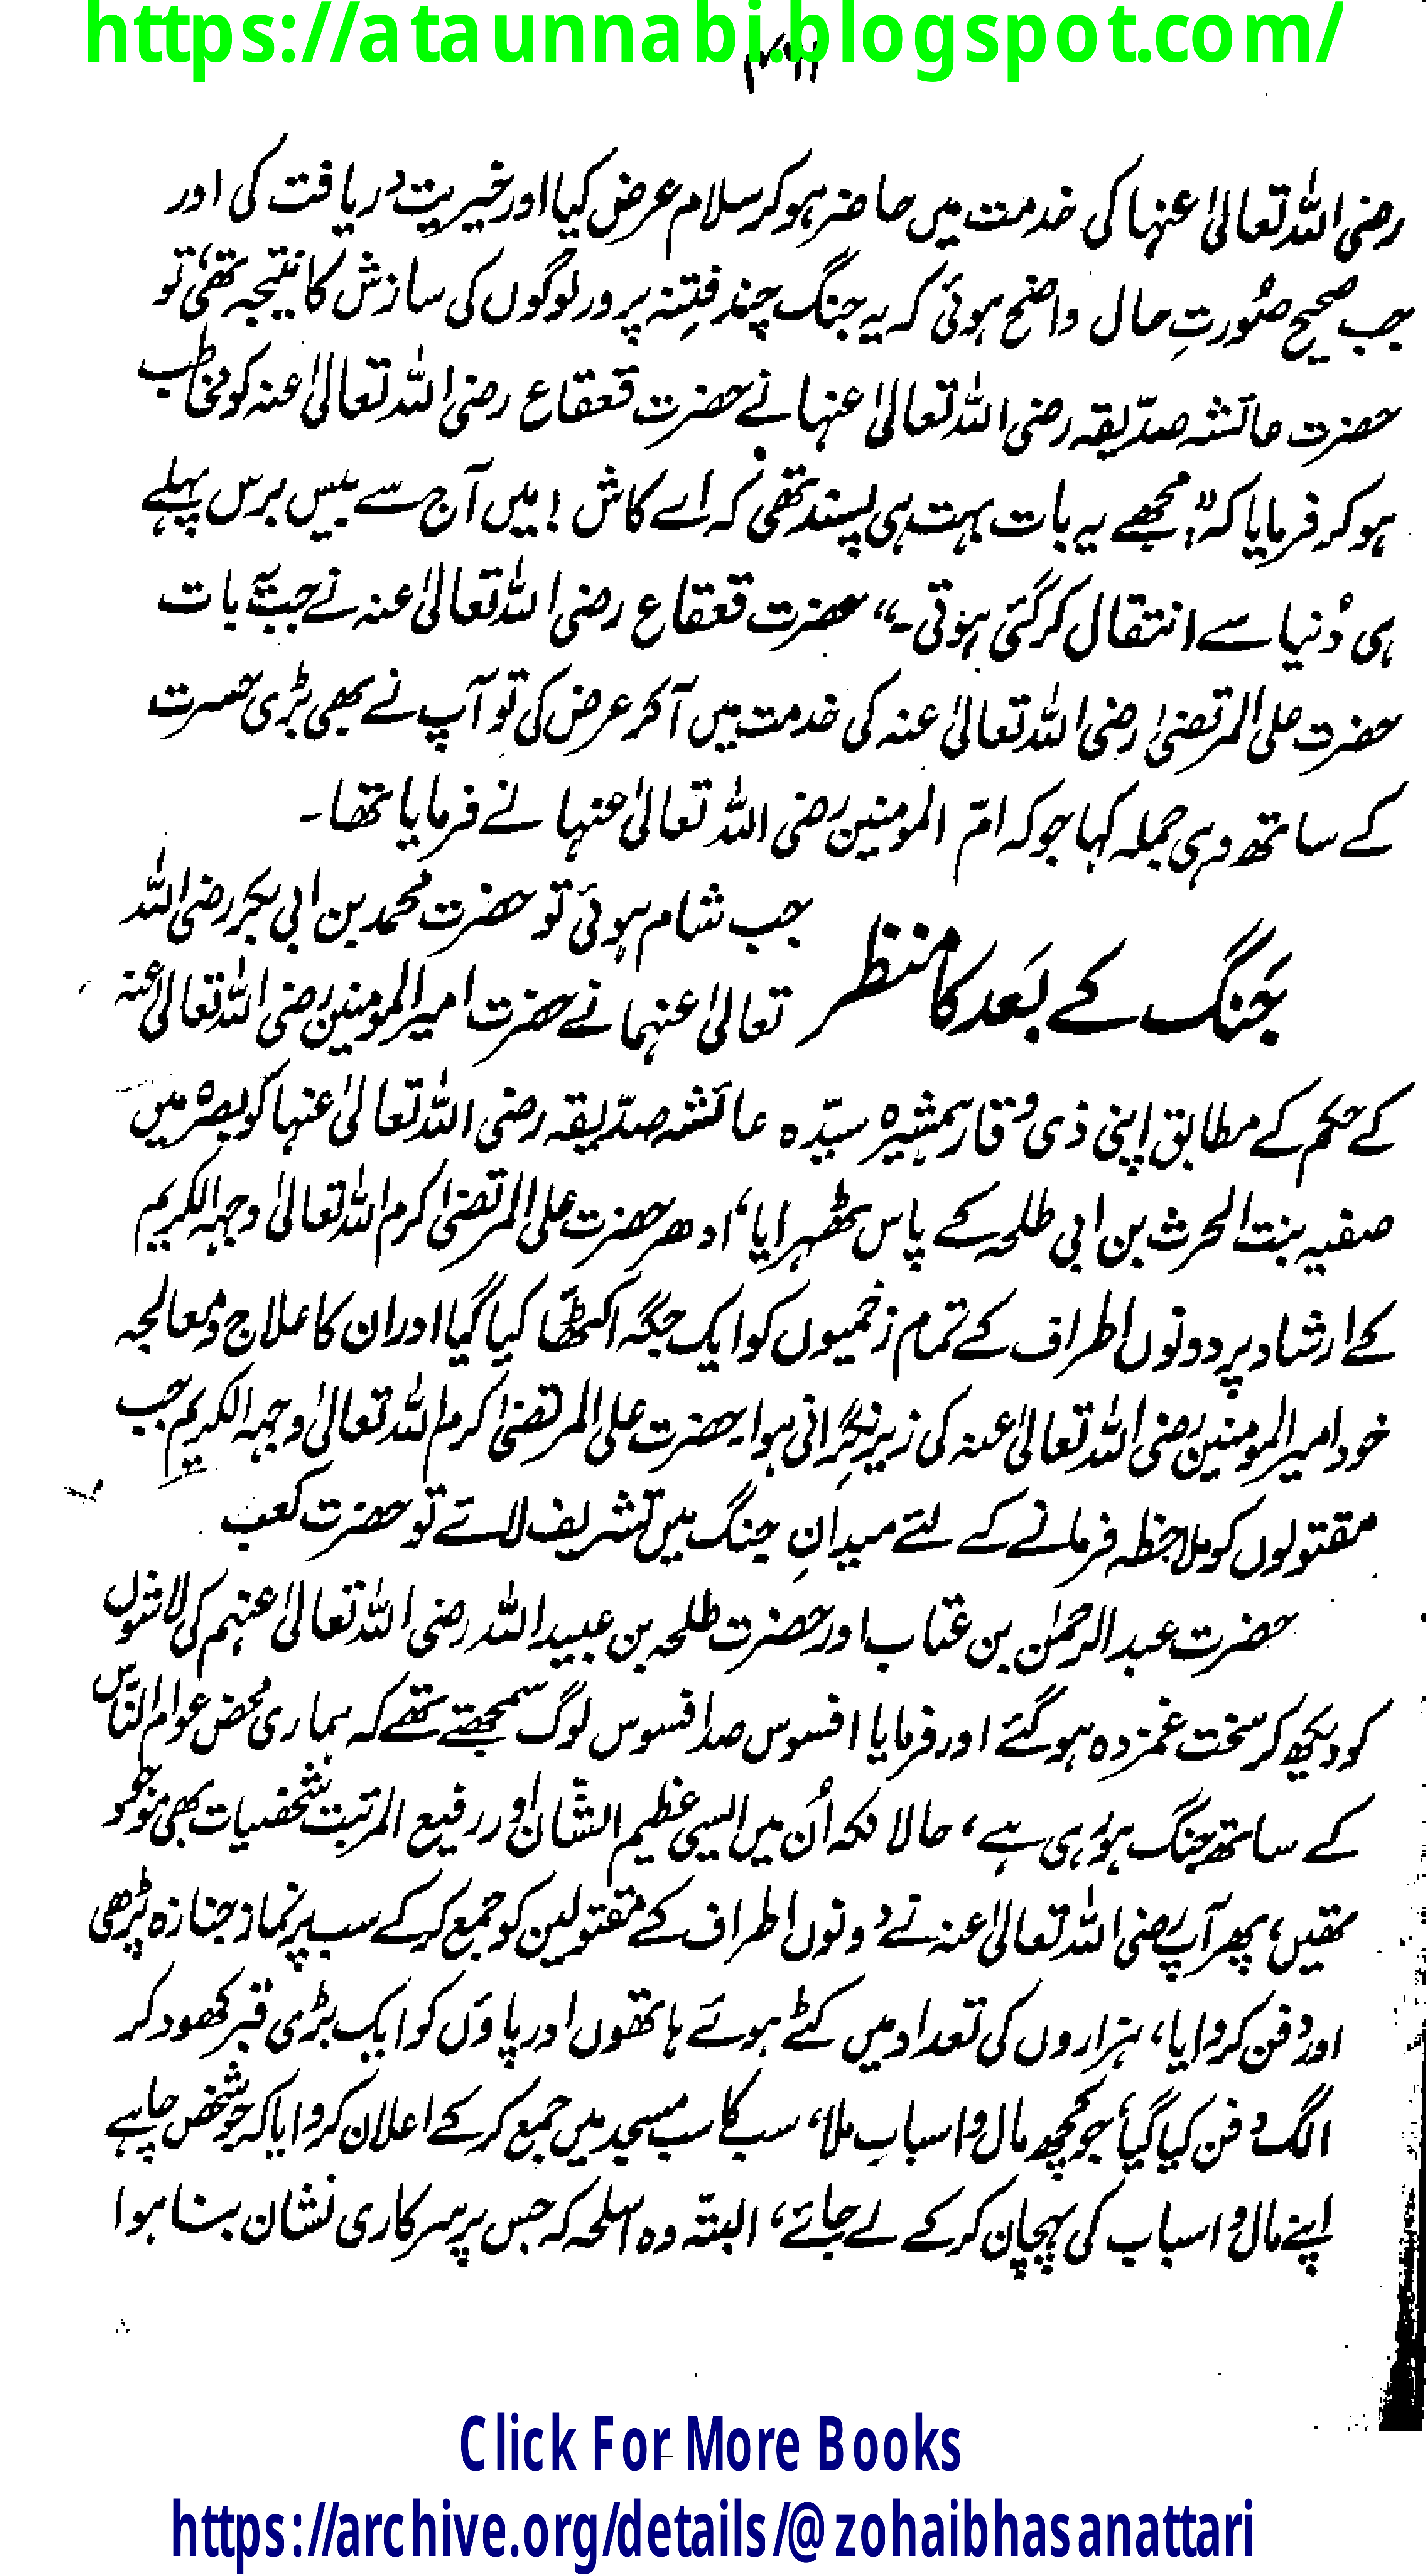 https://ataunnabi.blogspot.com/
رضی اللہ تعالیٰ عنہا کی خدمت میں حاضر ہو کر سلام عرض کیا اور خیریت دریافت کی اور
جب صحیح صُورتِ حال واضح ہوئی کہ یہ جنگ چند فتِنہ پرور لوگوں کی سازش کا نتیجہ تھی، تو
حضرت عائشہ صدّیقہ رضی اللہ تعالیٰ عنہا نے حضرت قعقاع رضی اللہ تعالیٰ عنہ کو مخاطب
ہو کر فرمایا کہ "مجھے یہ بات بہت ہی پسند تھی کہ اے کاش ! میں آج سے بیس برس پہلے
ہی دُنیا سے انتقال کر گئی ہوتی۔" حضرت قعقاع رضی اللہ تعالیٰ عنہ نے جب یہ بات
حضرت علی المرتضیٰ رضی اللہ تعالیٰ عنہ کی خدمت میں آکر عرض کی تو آپ نے بھی بڑی حسرت
کے ساتھ وہی جملہ کہا جو کہ امّ المومنین رضی اللہ تعالیٰ عنہا نے فرمایا تھا۔
جنگ کے بعد کا منظر
جب شام ہوئی تو حضرت محمد بن ابی بکر رضی اللہ
تعالیٰ عنہما نے حضرت امیر المومنین رضی اللہ تعالیٰ عنہ
کے حکم کے مطابق اپنی ذی وقار ہمشیرہ سیّدہ عائشہ صدّیقہ رضی اللہ تعالیٰ عنہا کو بصرہ میں
صفیہ بنت الحرث بن ابی طلحہ کے پاس ٹھہرایا، ادھر حضرت علی المرتضیٰ کرم اللہ تعالیٰ وجہہ الکریم
کے ارشاد پر دونوں اطراف کے تمام زخمیوں کو ایک جگہ اکٹھّا کیا گیا اور ان کا علاج و معالجہ
خود امیر المومنین رضی اللہ تعالیٰ عنہ کی زیرِ نگرانی ہوا۔ حضرت علی المرتضیٰ کرم اللہ تعالیٰ وجہہ الکریم جب
مقتولوں کو ملاحظہ فرمانے کے لئے میدانِ جنگ میں تشریف لائے تو حضرت کعب
حضرت عبد الرحمٰن بن عتاب اور حضرت طلحہ بن عبید اللہ رضی اللہ تعالیٰ عنہم کی لاشوں
کو دیکھ کر سخت غمزدہ ہو گئے اور فرمایا افسوس صد افسوس لوگ سمجھتے تھے کہ ہماری محض عوام النّاس
کے ساتھ جنگ ہو رہی ہے، حالانکہ اُن میں ایسی عظیم الشّان اور رفیع المرتبت شخصیات بھی موجود
تھیں، پھر آپ رضی اللہ تعالیٰ عنہ نے دونوں اطراف کے مقتولین کو جمع کر کے سب پر نماز جنازہ پڑھی
اور دفن کروایا، ہزاروں کی تعداد میں کٹے ہوئے ہاتھوں اور پاؤں کو ایک بڑی قبر کھود کر
الگ دفن کیا گیا، جو کچھ مال و اسباب ملا، سب کا سب مسجد میں جمع کر کے اعلان کروایا کہ جو شخص چاہے
اپنے مال و اسباب کی پہچان کر کے لے جائے، البتّہ وہ اسلحہ کہ جس پر سرکاری نشان بنا ہوا
Click For More Books
https://archive.org/details/@zohaibhasanattari